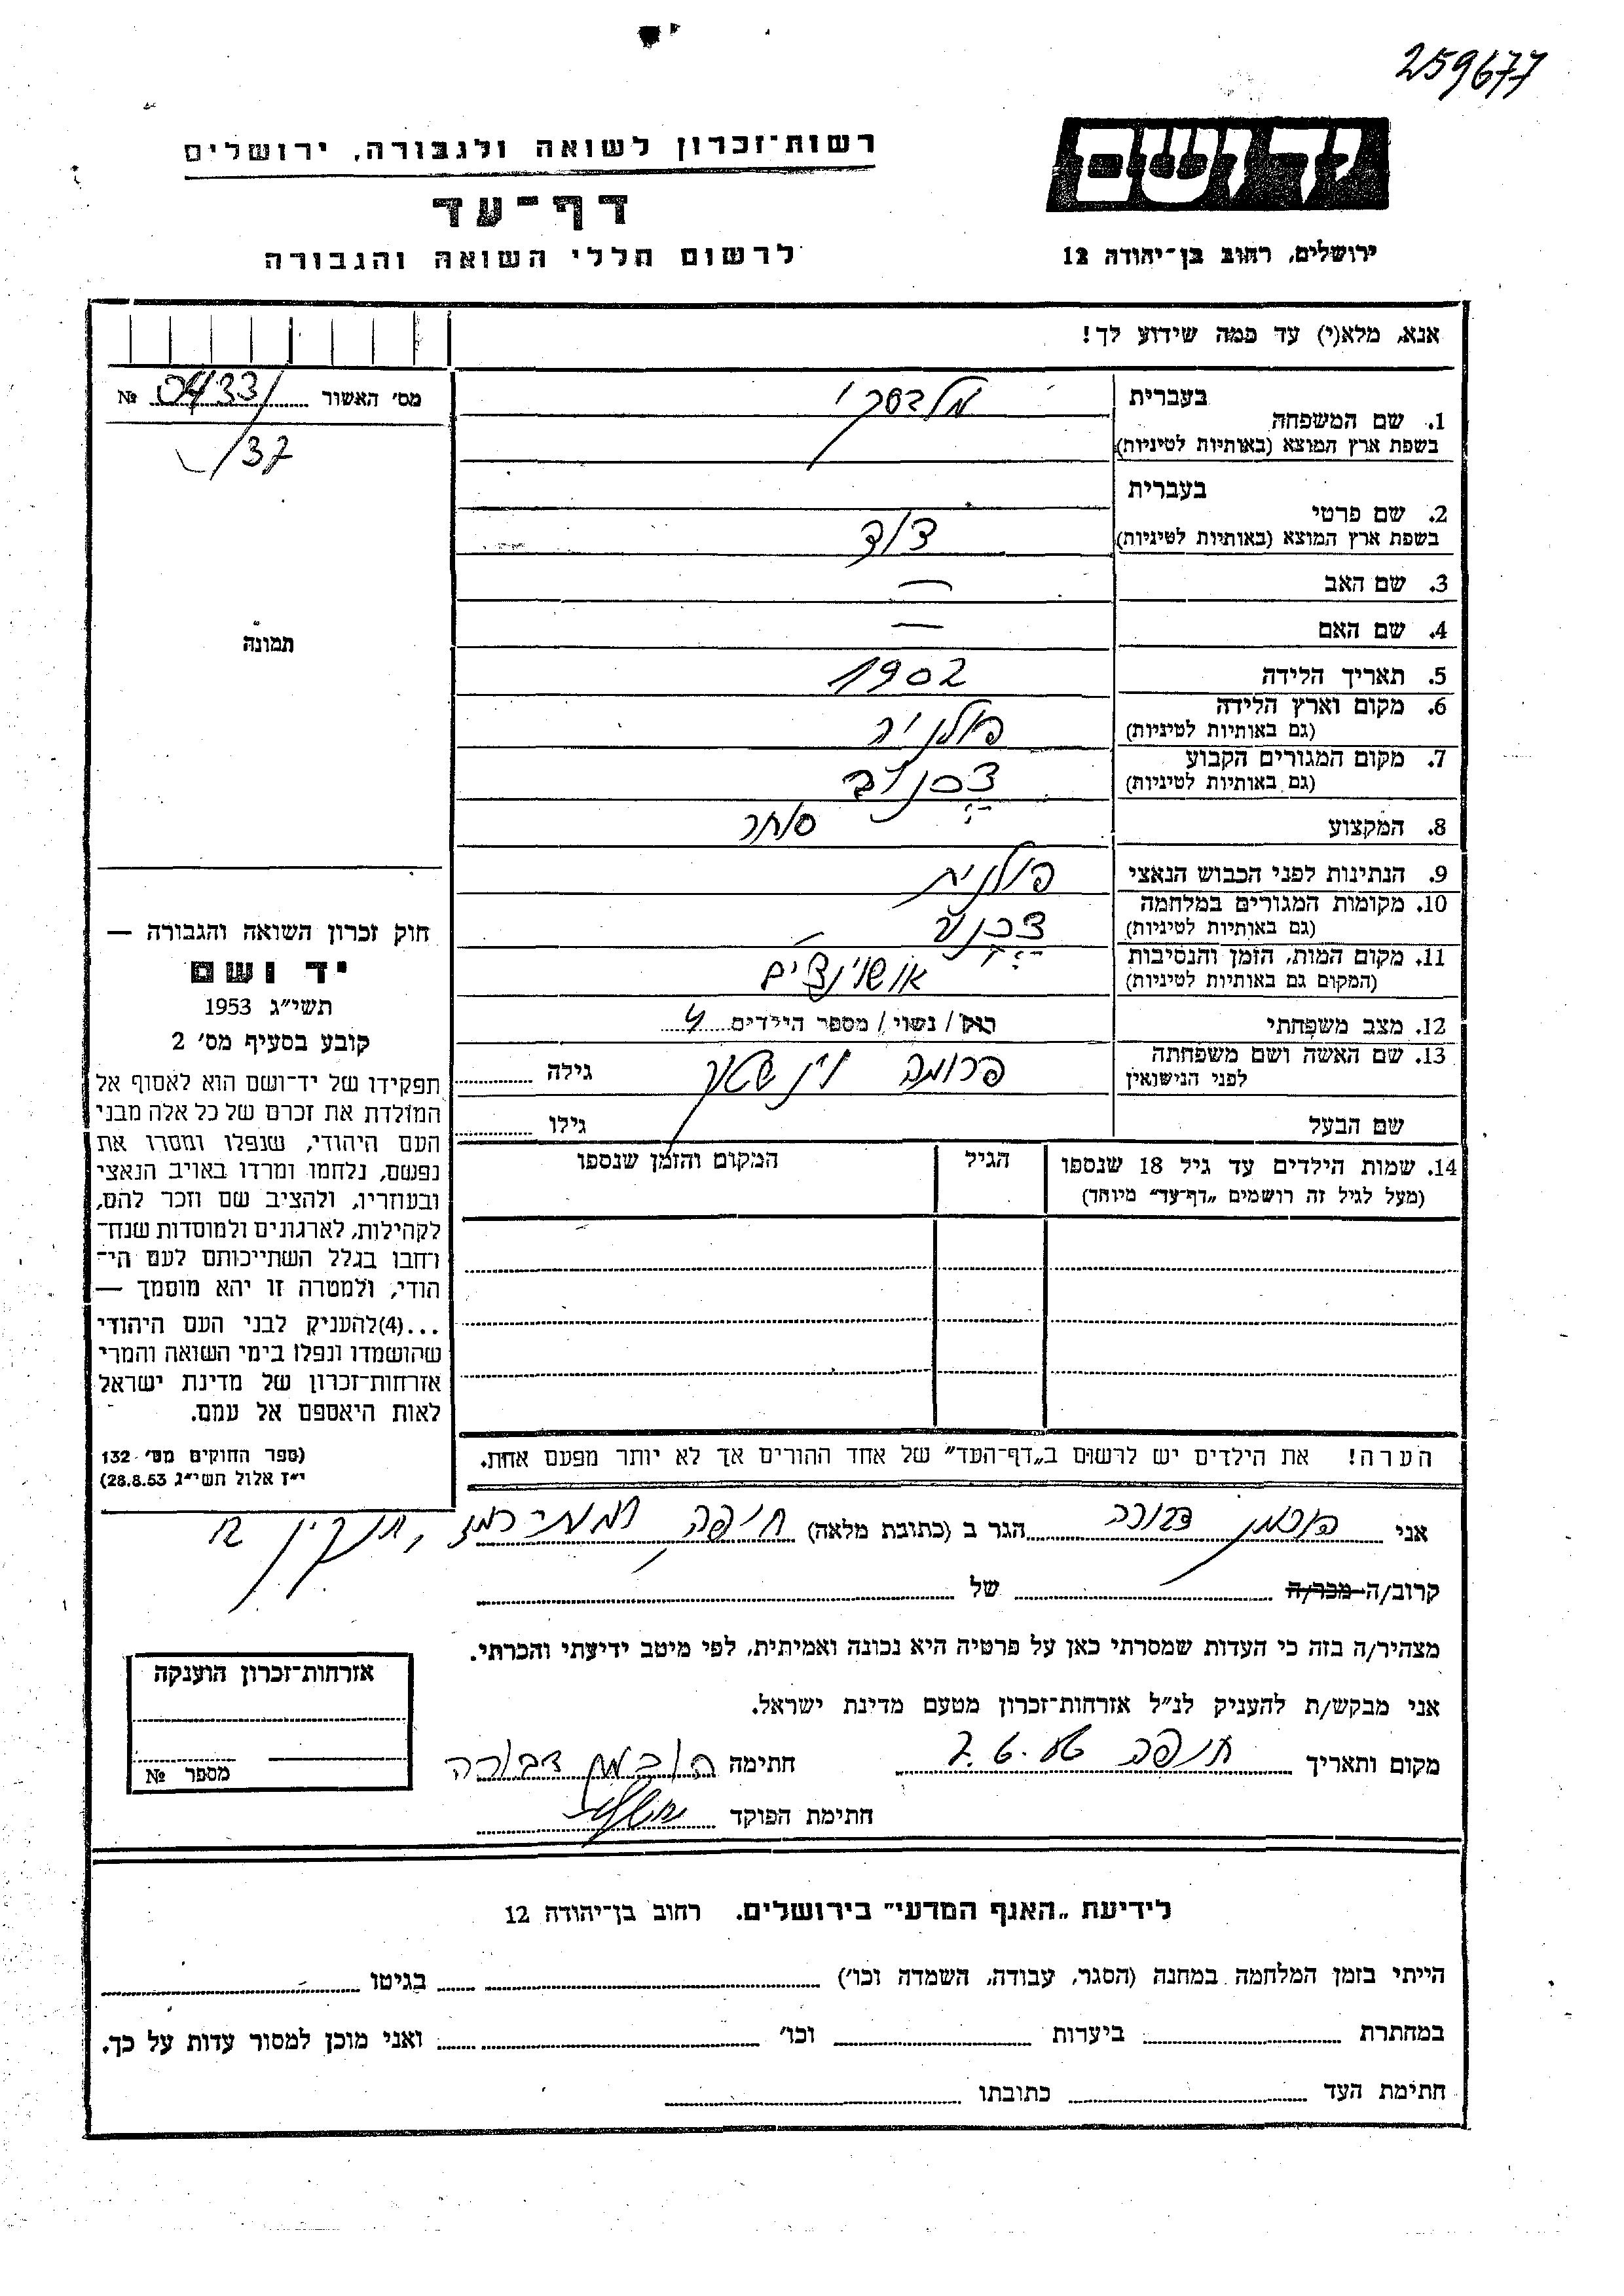 259677
יד ושם
רשות־זכרון לשואה ולגבורה, ירושלים
דף־עד
לרשום חללי השואה והגבורה
ירושלים, רחוב בן־יהודה 12
אנא, מלא(י) עד כמה שידוע לך!
מס' האשור 0433/ №
37/
תמונה
1. שם המשפחה
בעברית
בשפת ארץ המוצא (באותיות לטיניות)
2. שם פרטי
בעברית
בשפת ארץ המוצא (באותיות לטיניות)
דוד
3. שם האב —
4. שם האם —
5. תאריך הלידה 1902
6. מקום וארץ הלידה
(גם באותיות לטיניות)
פולניה
7. מקום המגורים הקבוע
(גם באותיות לטיניות)
8. המקצוע סוחר
9. הנתינות לפני הכבוש הנאצי פולנית
10. מקומות המגורים במלחמה
(גם באותיות לטיניות)
11. מקום המות, הזמן והנסיבות
(המקום גם באותיות לטיניות)
אושוינצים
12. מצב משפחתי רוק / נשוי / מספר הילדים 4
13. שם האשה ושם משפחתה
לפני הנישואין
פרומה גילה
שם הבעל גילו
14. שמות הילדים עד גיל 18 שנספו
(מעל לגיל זה רושמים „דף־עד״ מיוחד)
הגיל
המקום והזמן שנספו
הערה! את הילדים יש לרשום ב„דף־העד״ של אחד ההורים אך לא יותר מפעם אחת.
חוק זכרון השואה והגבורה —
יד ושם
תשי״ג 1953
קובע בסעיף מס' 2
תפקידו של יד־ושם הוא לאסוף אל
המולדת את זכרם של כל אלה מבני
העם היהודי, שנפלו ומסרו את
נפשם, נלחמו ומרדו באויב הנאצי
ובעוזריו, ולהציב שם וזכר להם,
לקהילות, לארגונים ולמוסדות שנח־
רחבו בגלל השתייכותם לעם הי־
הודי, ולמטרה זו יהא מוסמך —
...(4)להעניק לבני העם היהודי
שהושמדו ונפלו בימי השואה והמרי
אזרחות־זכרון של מדינת ישראל
לאות היאספם אל עמם.
(ספר החוקים מס' 132
י״ז אלול תשי״ג 28.8.53)
אני הוכמן דבורה הגר ב (כתובת מלאה) חיפה 12
קרוב/ה מכר/ה של
מצהיר/ה בזה כי העדות שמסרתי כאן על פרטיה היא נכונה ואמיתית, לפי מיטב ידיעתי והכרתי.
אני מבקש/ת להעניק לנ״ל אזרחות־זכרון מטעם מדינת ישראל.
מקום ותאריך חיפה חתימה הוכמן דבורה
חתימת הפוקד
אזרחות־זכרון הוענקה
מספר №
לידיעת „האגף המדעי״ בירושלים. רחוב בן־יהודה 12
הייתי בזמן המלחמה במחנה (הסגר, עבודה, השמדה וכו') בגיטו
במחתרת ביערות וכו' ואני מוכן למסור עדות על כך.
חתימת העד כתובתו